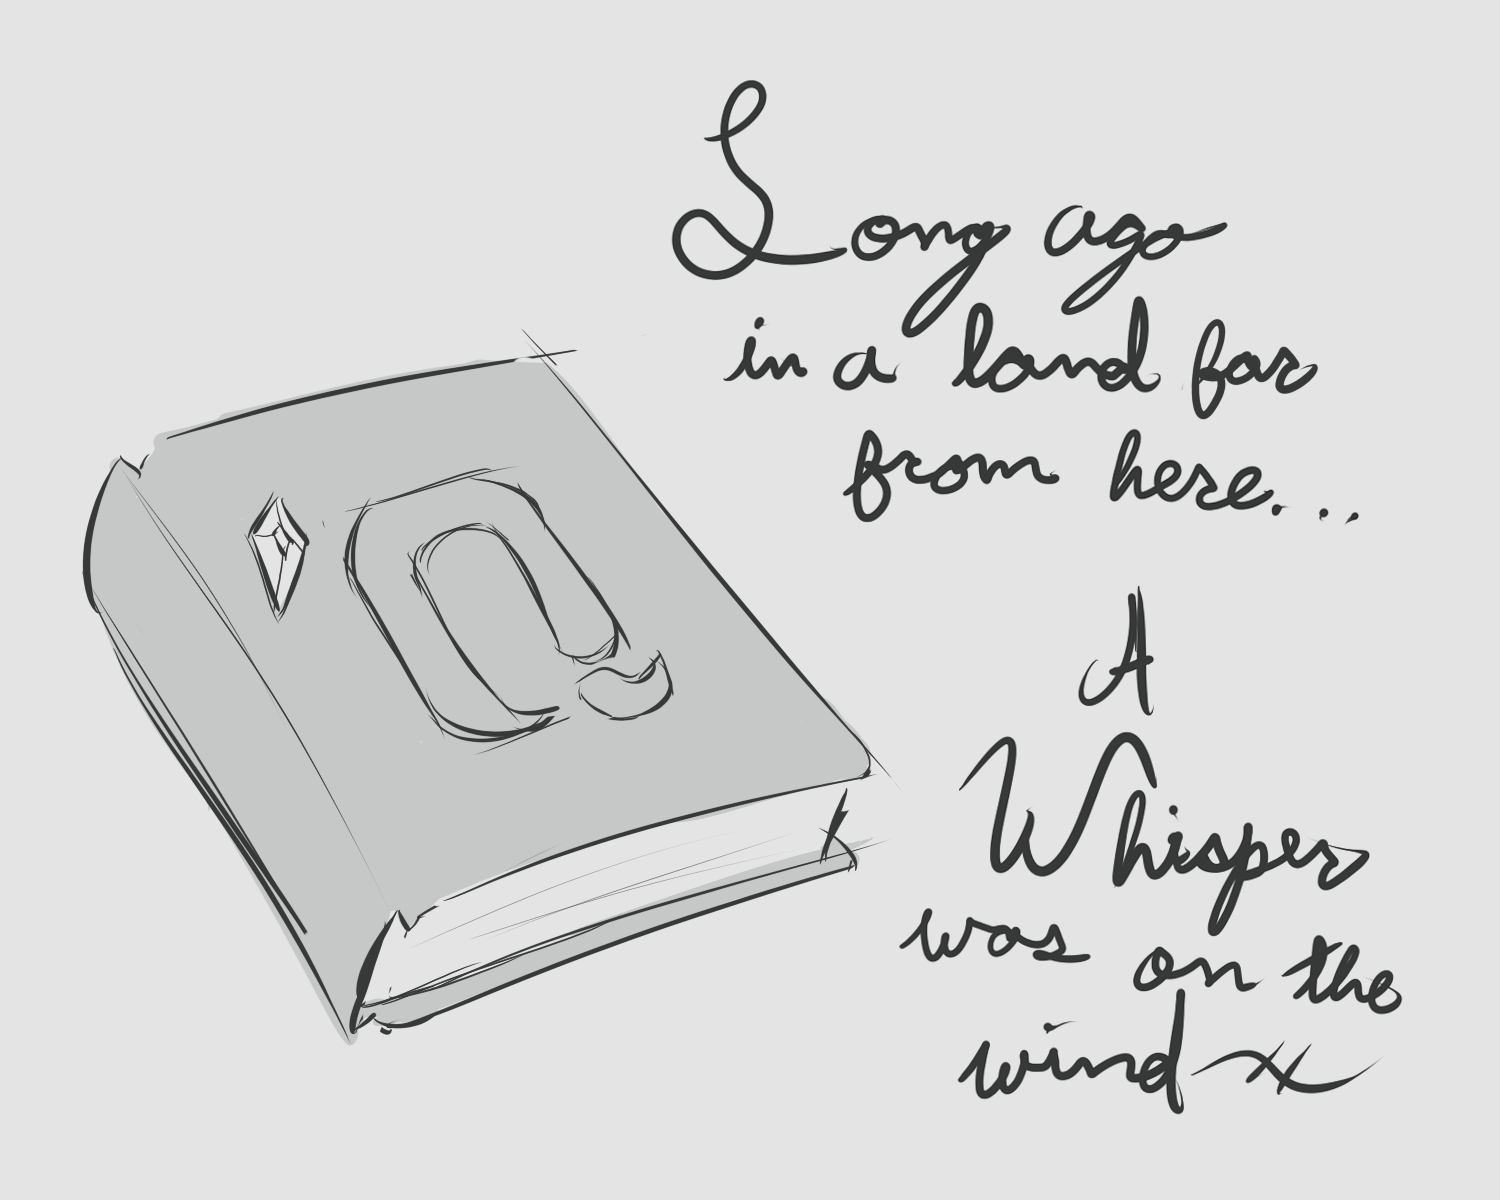 Q
Long ago
in a land far
from here...
A
Whisper
was on the
wind